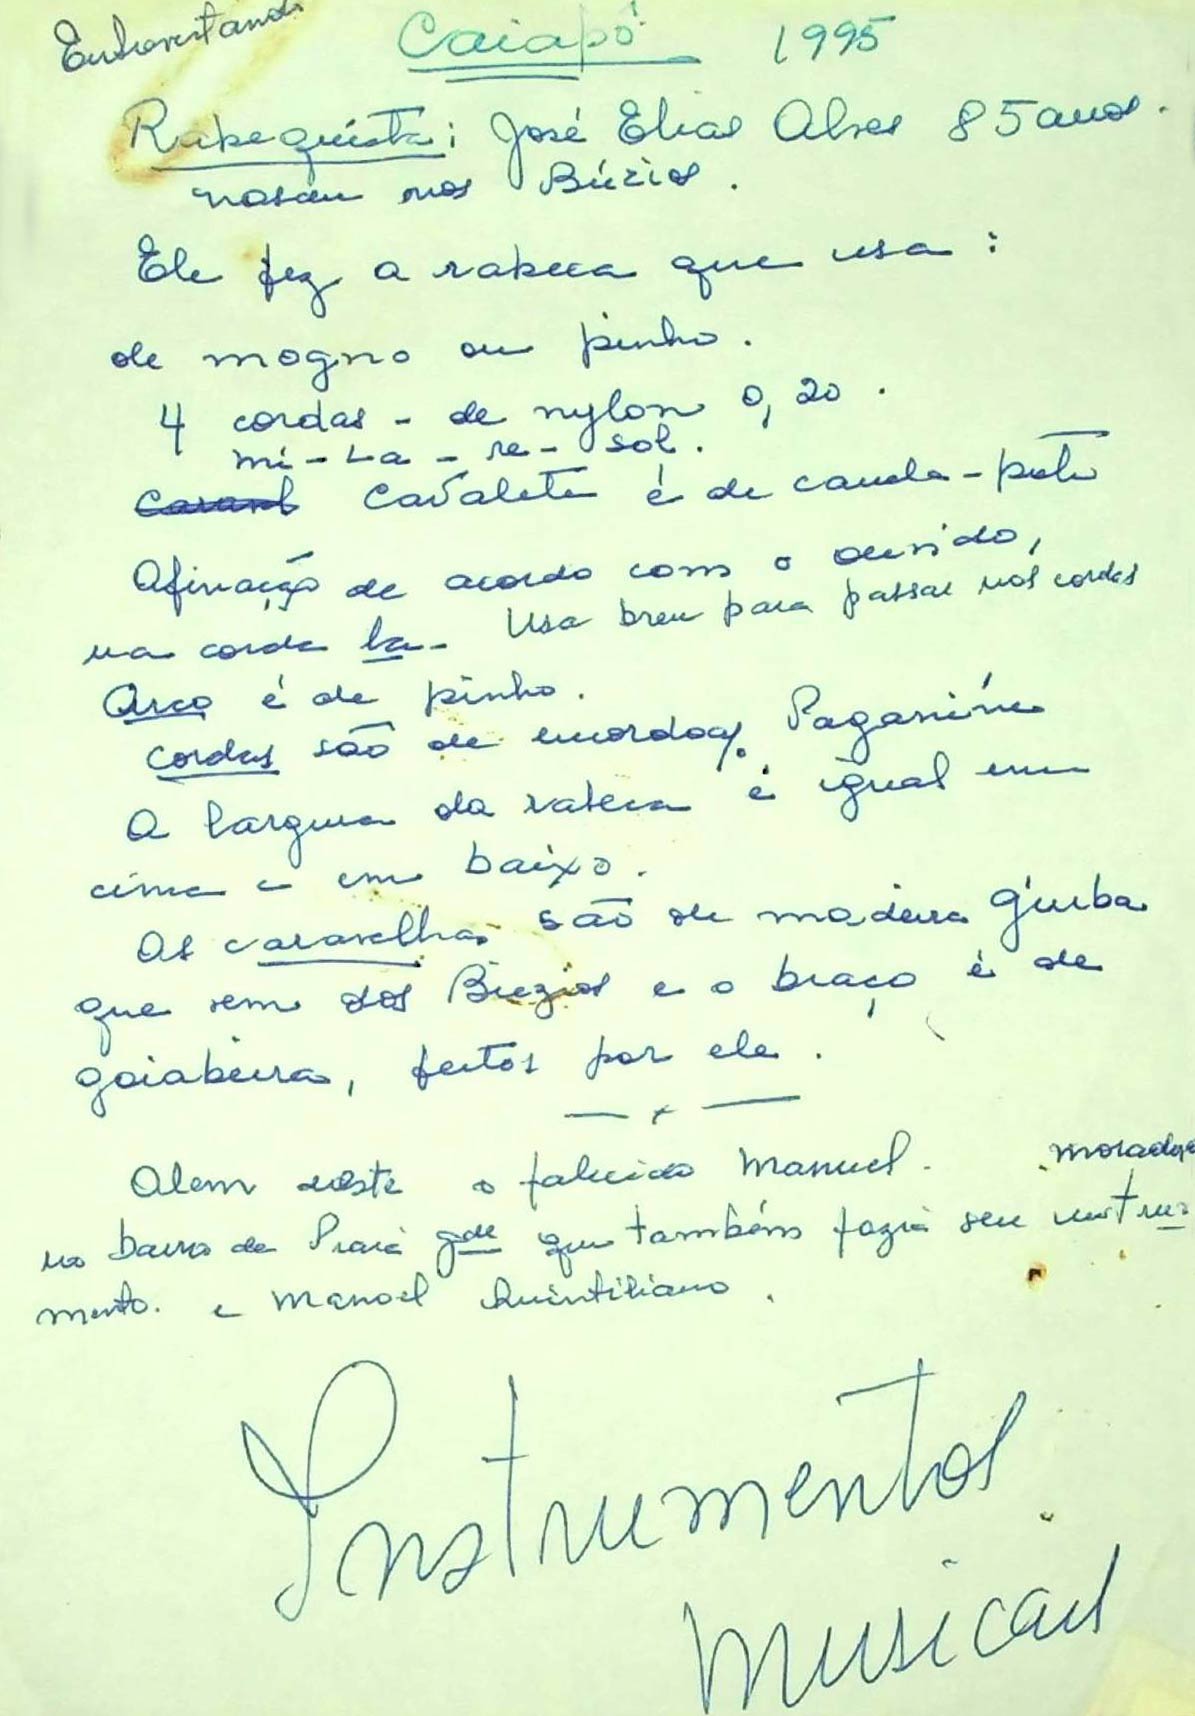 Entrevistando
Caiapó 1995
Rabequista: José Elias Alves 85 anos.
nasceu nos Búzios.
Ele fez a rabeca que usa:
de mogno ou pinho.
4 cordas - de nylon 0,20.
mi - La - re - sol.
Cavalete é de canela - preta
Afinação de acordo com o ouvido,
na corda la - Usa breu para passar nas cordas
Arco é de pinho.
cordas são de encordoaç. Paganini
A largura da rabeca é igual em
cima e em baixo.
As caravelhas são de madeira
que vem dos Búzios e o braço é de
goiabeira, feitos por ele.
— x —
Alem deste o falecido Manuel. morador
no bairro da Praia gde que também fazia seu instru-
mento. e Manoel Quintiliano.
Instrumentos
musicais